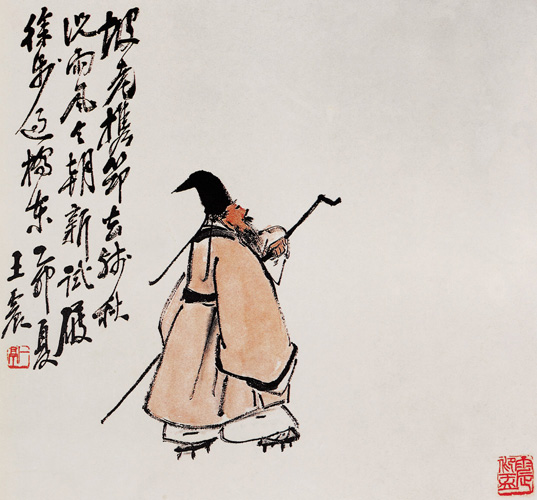 坡老携筇去殘秋
况雨風今朝新試屐
徐步過橋東 乙卯夏
王震
一亭